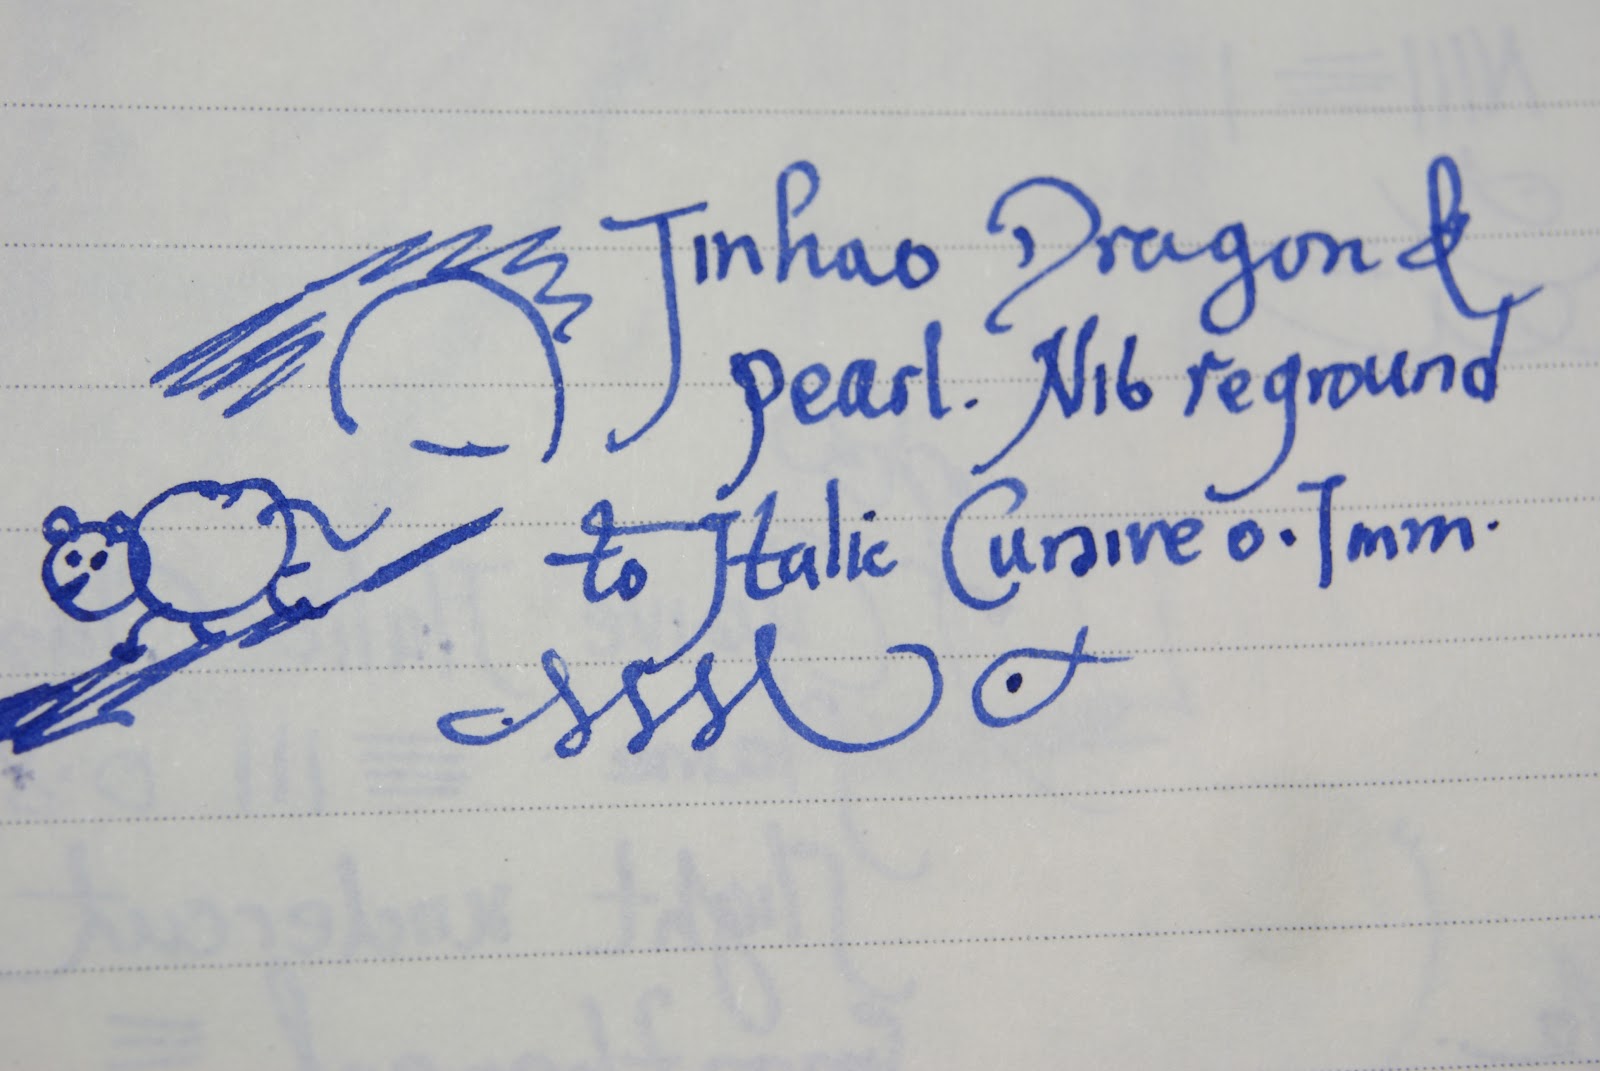 Jinhao Dragon &
pearl. Nib reground
to Italic Cursive 0.7mm.